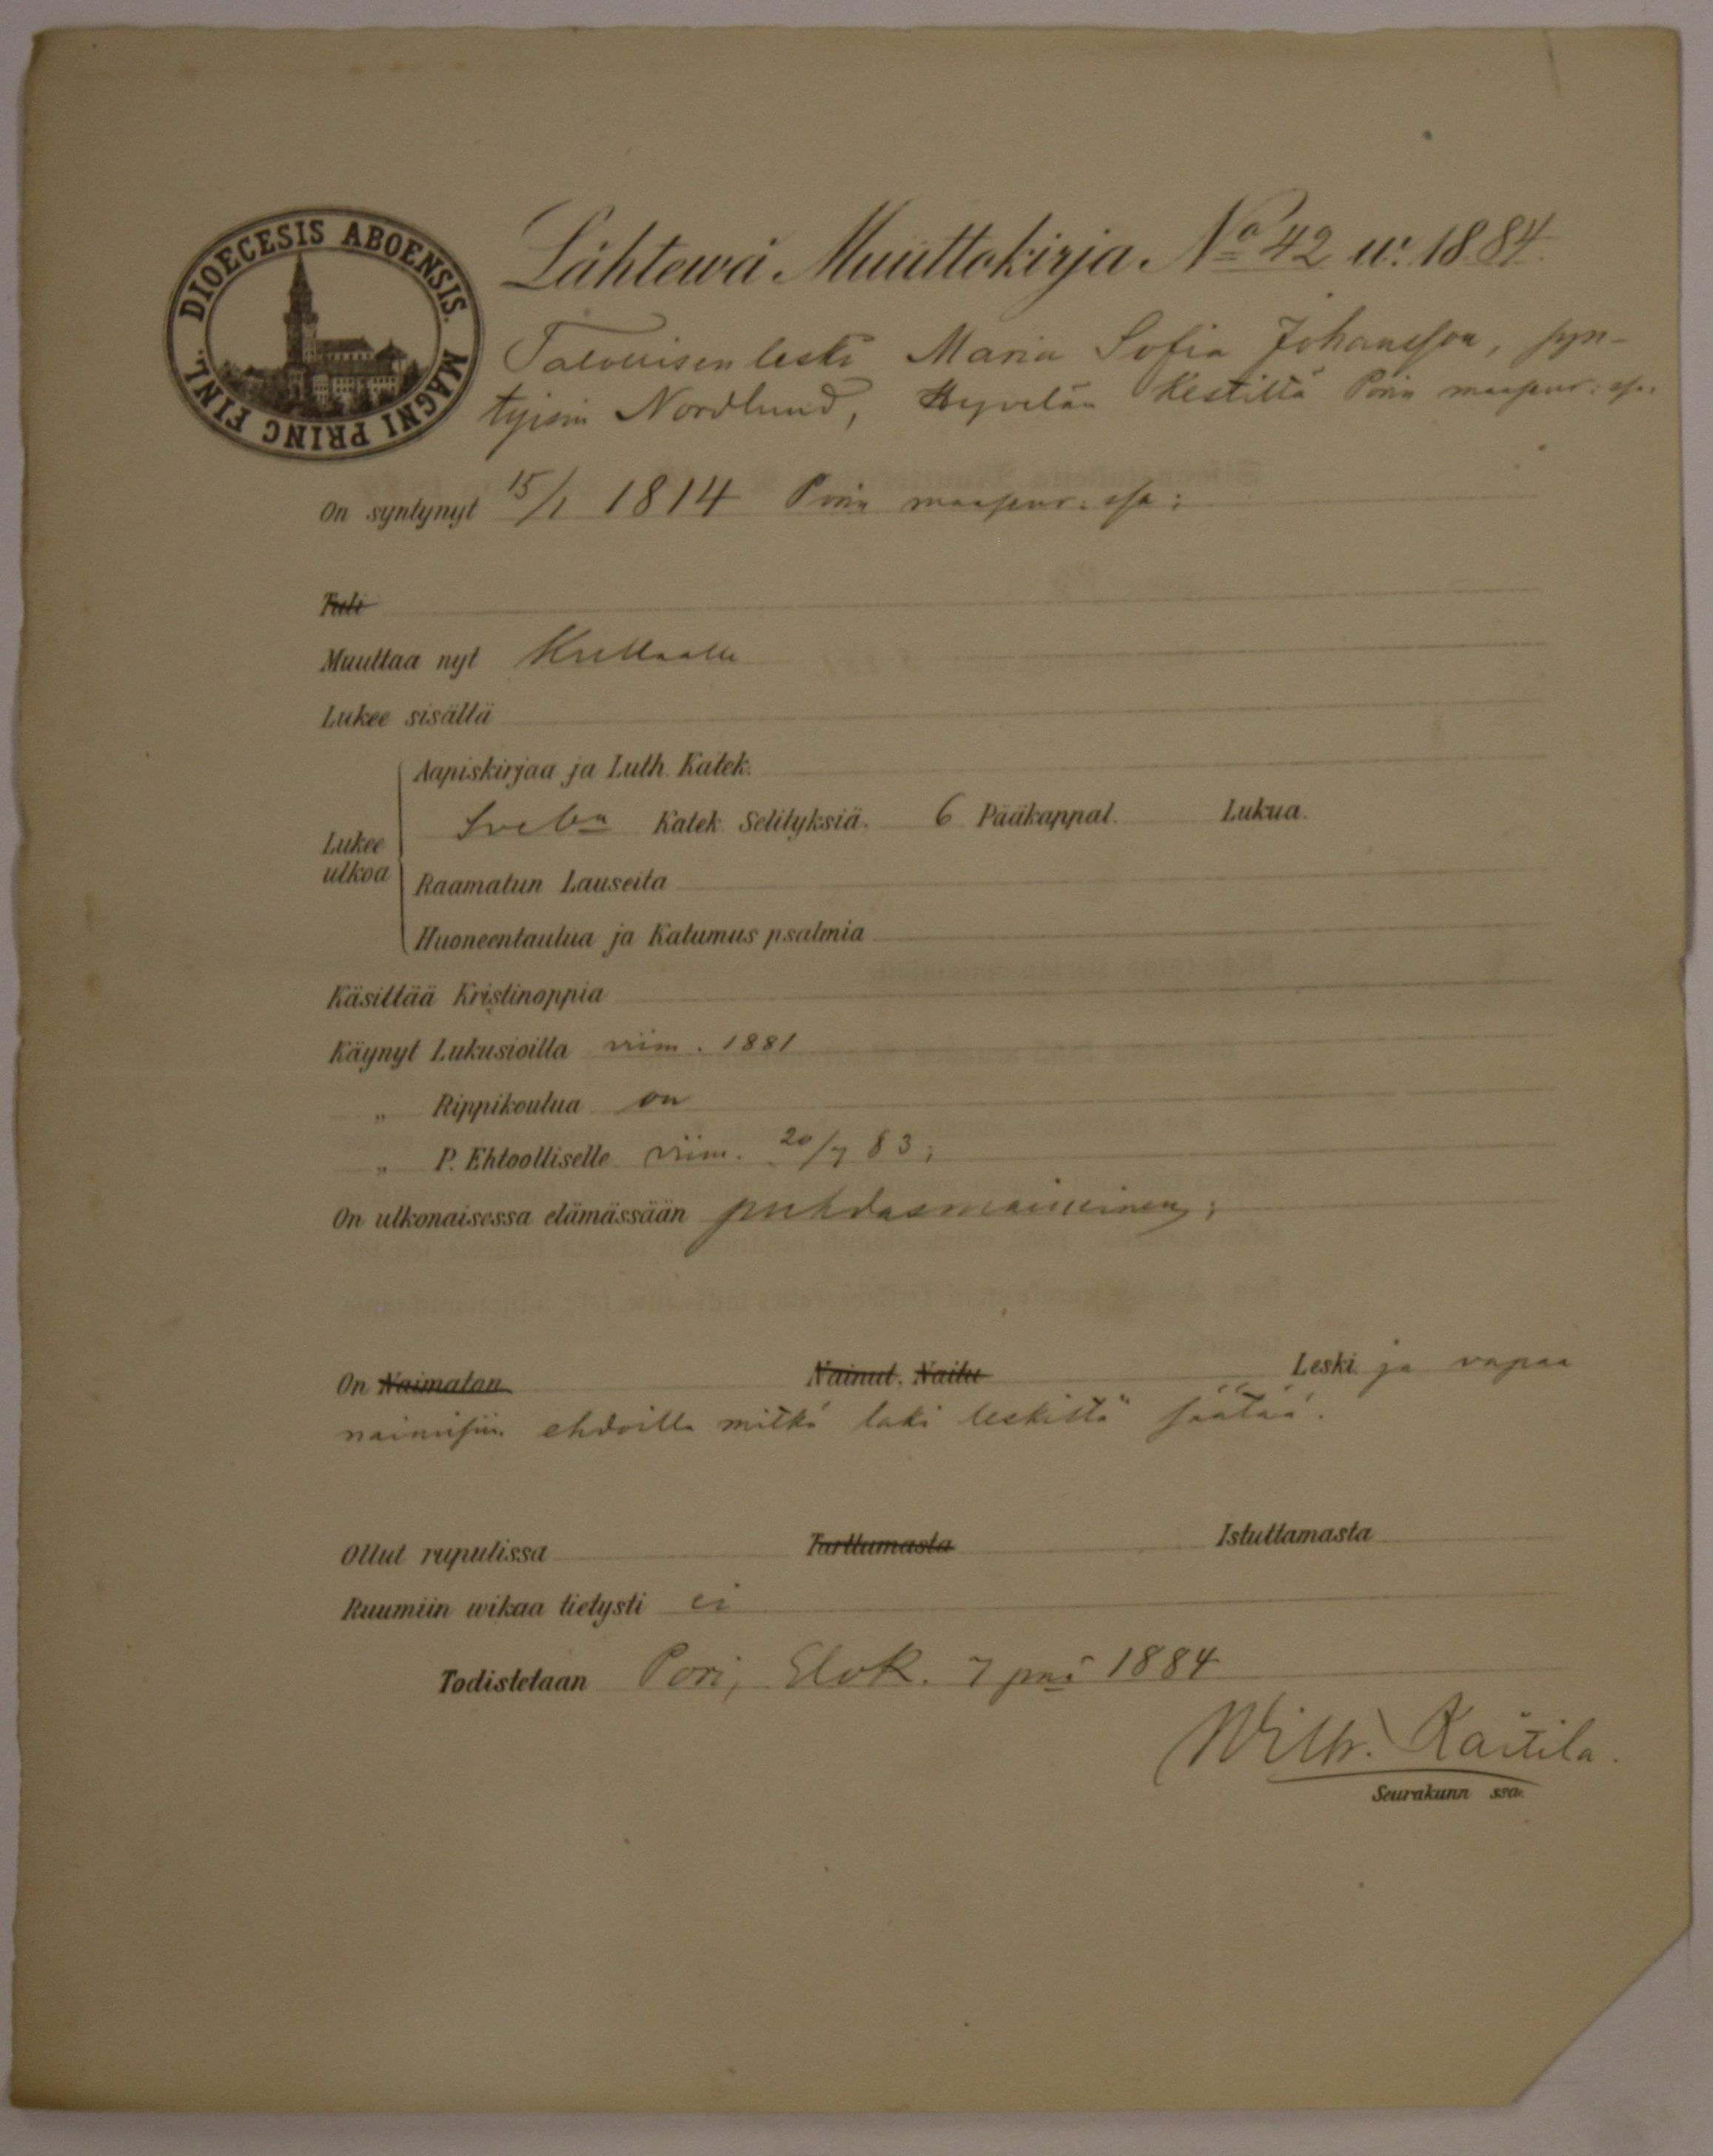 DIOECESIS ABOENSIS. MAGNI PRINC FINL.
Lähtewä Muuttokirja No 42 w. 1884.
Talollisen leski Maria Sofia Johansson, syn-
tyisin Nordlund, Hyvelän Kestiltä Porin maaseur: ssa.
On syntynyt 15/1 1814 Porin maaseur. ssa;
Tuli
Muuttaa nyt Kullaalle
Lukee sisältä
Aapiskirjaa ja Luth. Katek.
Sveb:n Katek. Selityksiä. 6 Pääkappal. Lukua.
Lukee ulkoa
Raamatun Lauseita
Huoneentaulua ja Katumus psalmia
Käsittää Kristinoppia
Käynyt Lukusioilla viim. 1881
„ Rippikoulua on
„ P. Ehtoolliselle viim. 20/7 83;
On ulkonaisessa elämässään puhdasmaineinen;
On Naimaton Nainut. Naitu Leski ja vapaa
naimisiin ehdoilla mitkä laki leskistä säätää.
Ollut rupulissa Tarttumasta Istuttamasta
Ruumiin wikaa tietysti ei
Todistetaan Pori, Elok. 7 pnä 1884
Wilh. Kaitila.
Seurakunn ssa.